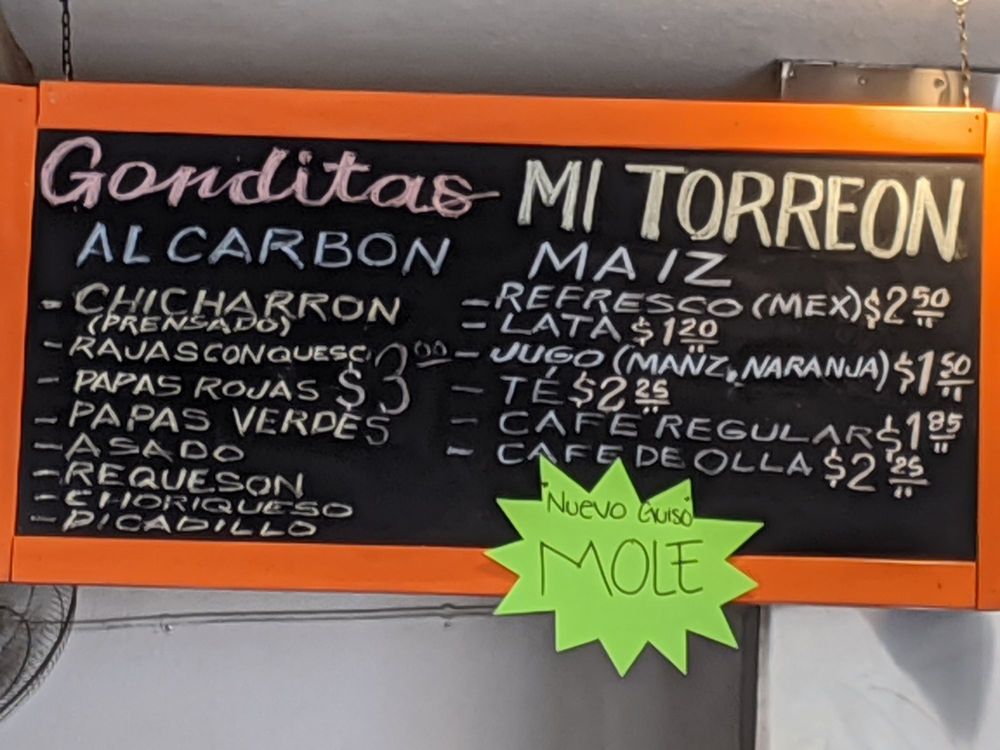 Gorditas MI TORREON
AL CARBON
- CHICHARRON
(PRENSADO)
- RAJAS CON QUESO
- PAPAS ROJAS $3.00
- PAPAS VERDES
- ASADO
- REQUESON
- CHORIQUESO
- PICADILLO
MAIZ
- REFRESCO (MEX) $2.50
- LATA $1.20
- JUGO (MANZ, NARANJA) $1.50
- TÉ $2.25
- CAFE REGULAR $1.85
- CAFE DE OLLA $2.25
"Nuevo Guiso"
MOLE